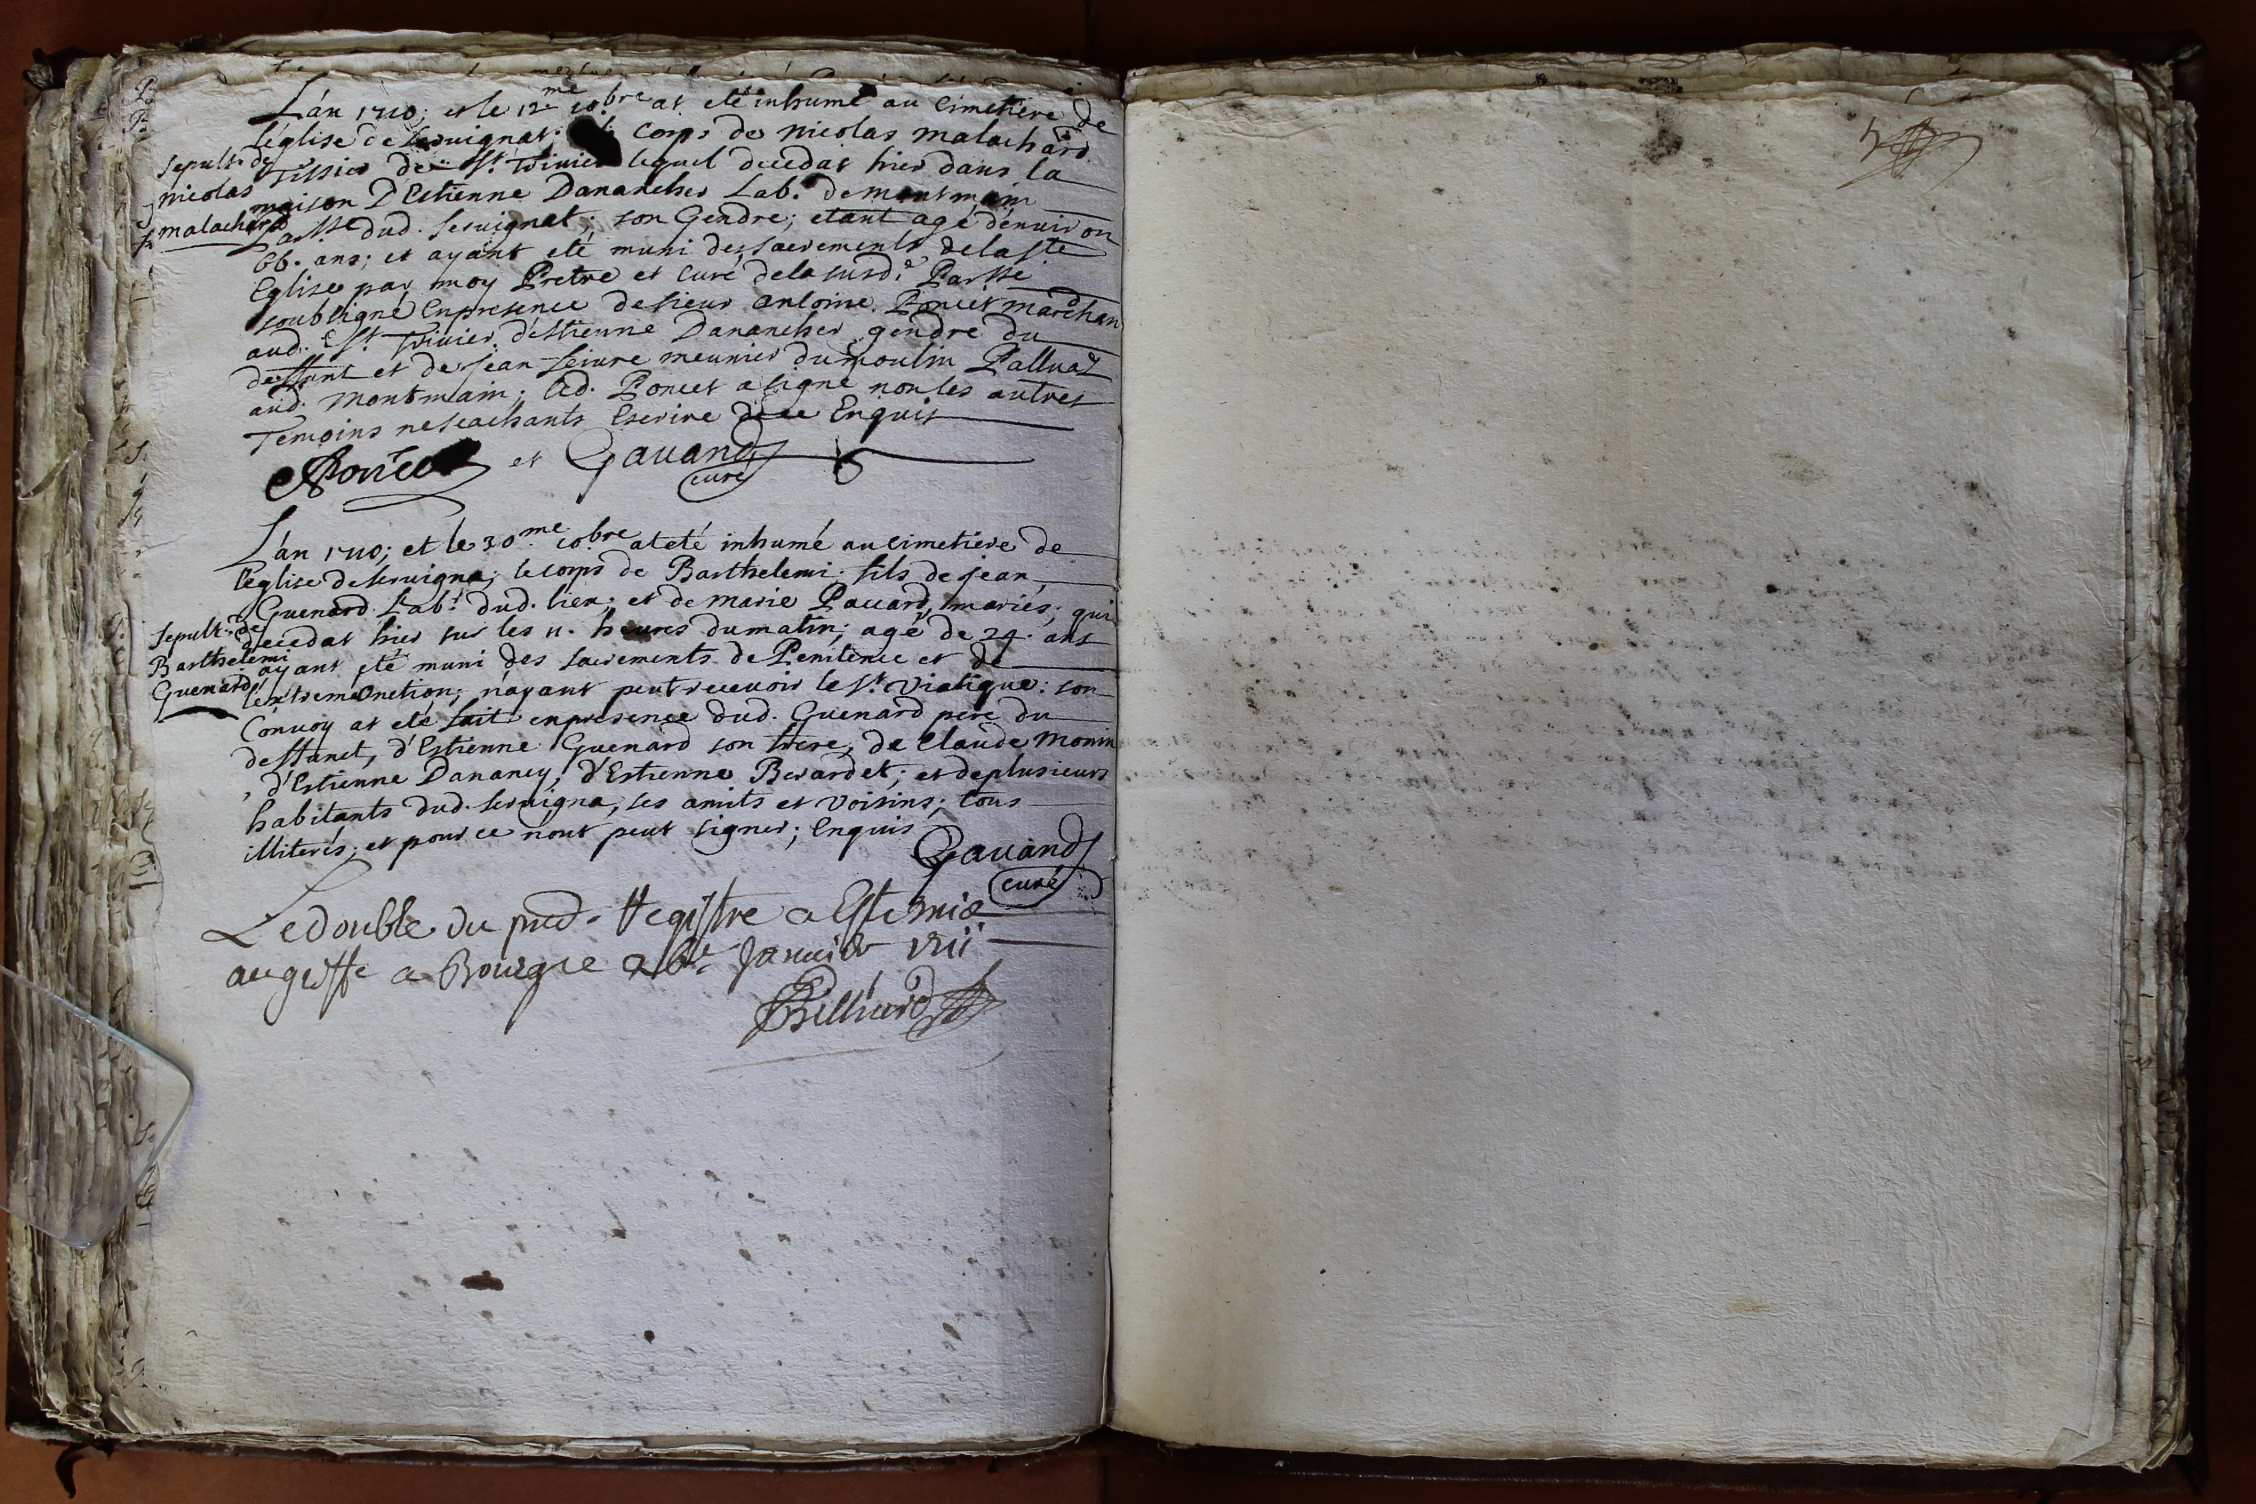 L'an 1710; et le 12me 10bre at eté inhumé au Cimetiere de
l'église de Servignat. Corps de nicolas malachard
Sepult. de
nicolas
malachard
Tissier de St. Trivier lequel decedat hier dans la
maison D'Estienne Dananches Lab. de montmain
Parsse dud. Servignat; son Gendre; etant agé d'environ
66. ans; et ayant eté muni des sacrements de la ste
Eglise par moy Pretre et curé de la susd. Parsse
soubsigné En presence de sieur antoine Poncet marchan
aud. St. Trivier, d'Estienne Dananches gendre du
deffunt et de jean feivre meunier du moulin Palluat
aud. montmain; led. Poncet a signé non les autres
Temoins ne scachants Escrire de ce Enquis
APoncet et Gavand
curé
L'an 1710; et le 30me 10bre at eté inhumé au cimetiere de
l'eglise de servigna; le corps de Barthelemi fils de jean
Guenard Lab.r dud. lieu; et de marie Pavard, mariés; qui
Sepult. de
Barthelemi
Guenard
decedat hier sur les 11. heures du matin; agé de 24. ans
ayant eté muni des sacrements de Penitence et de
l'extreme Onction; n'ayant peut recevoir le St. Viatique: son
Convoy at eté fait en presence dud. Guenard pere du
deffunct, d'Estienne Guenard son frere, de Claude monin
, d'Estienne Dananey, d'Estienne Berardet; et de plusieurs
habitants dud. servigna, ses amits et voisins; tous
illiterés, et pour ce n'ont peut signer; Enquis
Gavand
curé
Le double du pnd. Registre a Esté mis
au greffe a Bourg ce Janvier 1711
Billiard